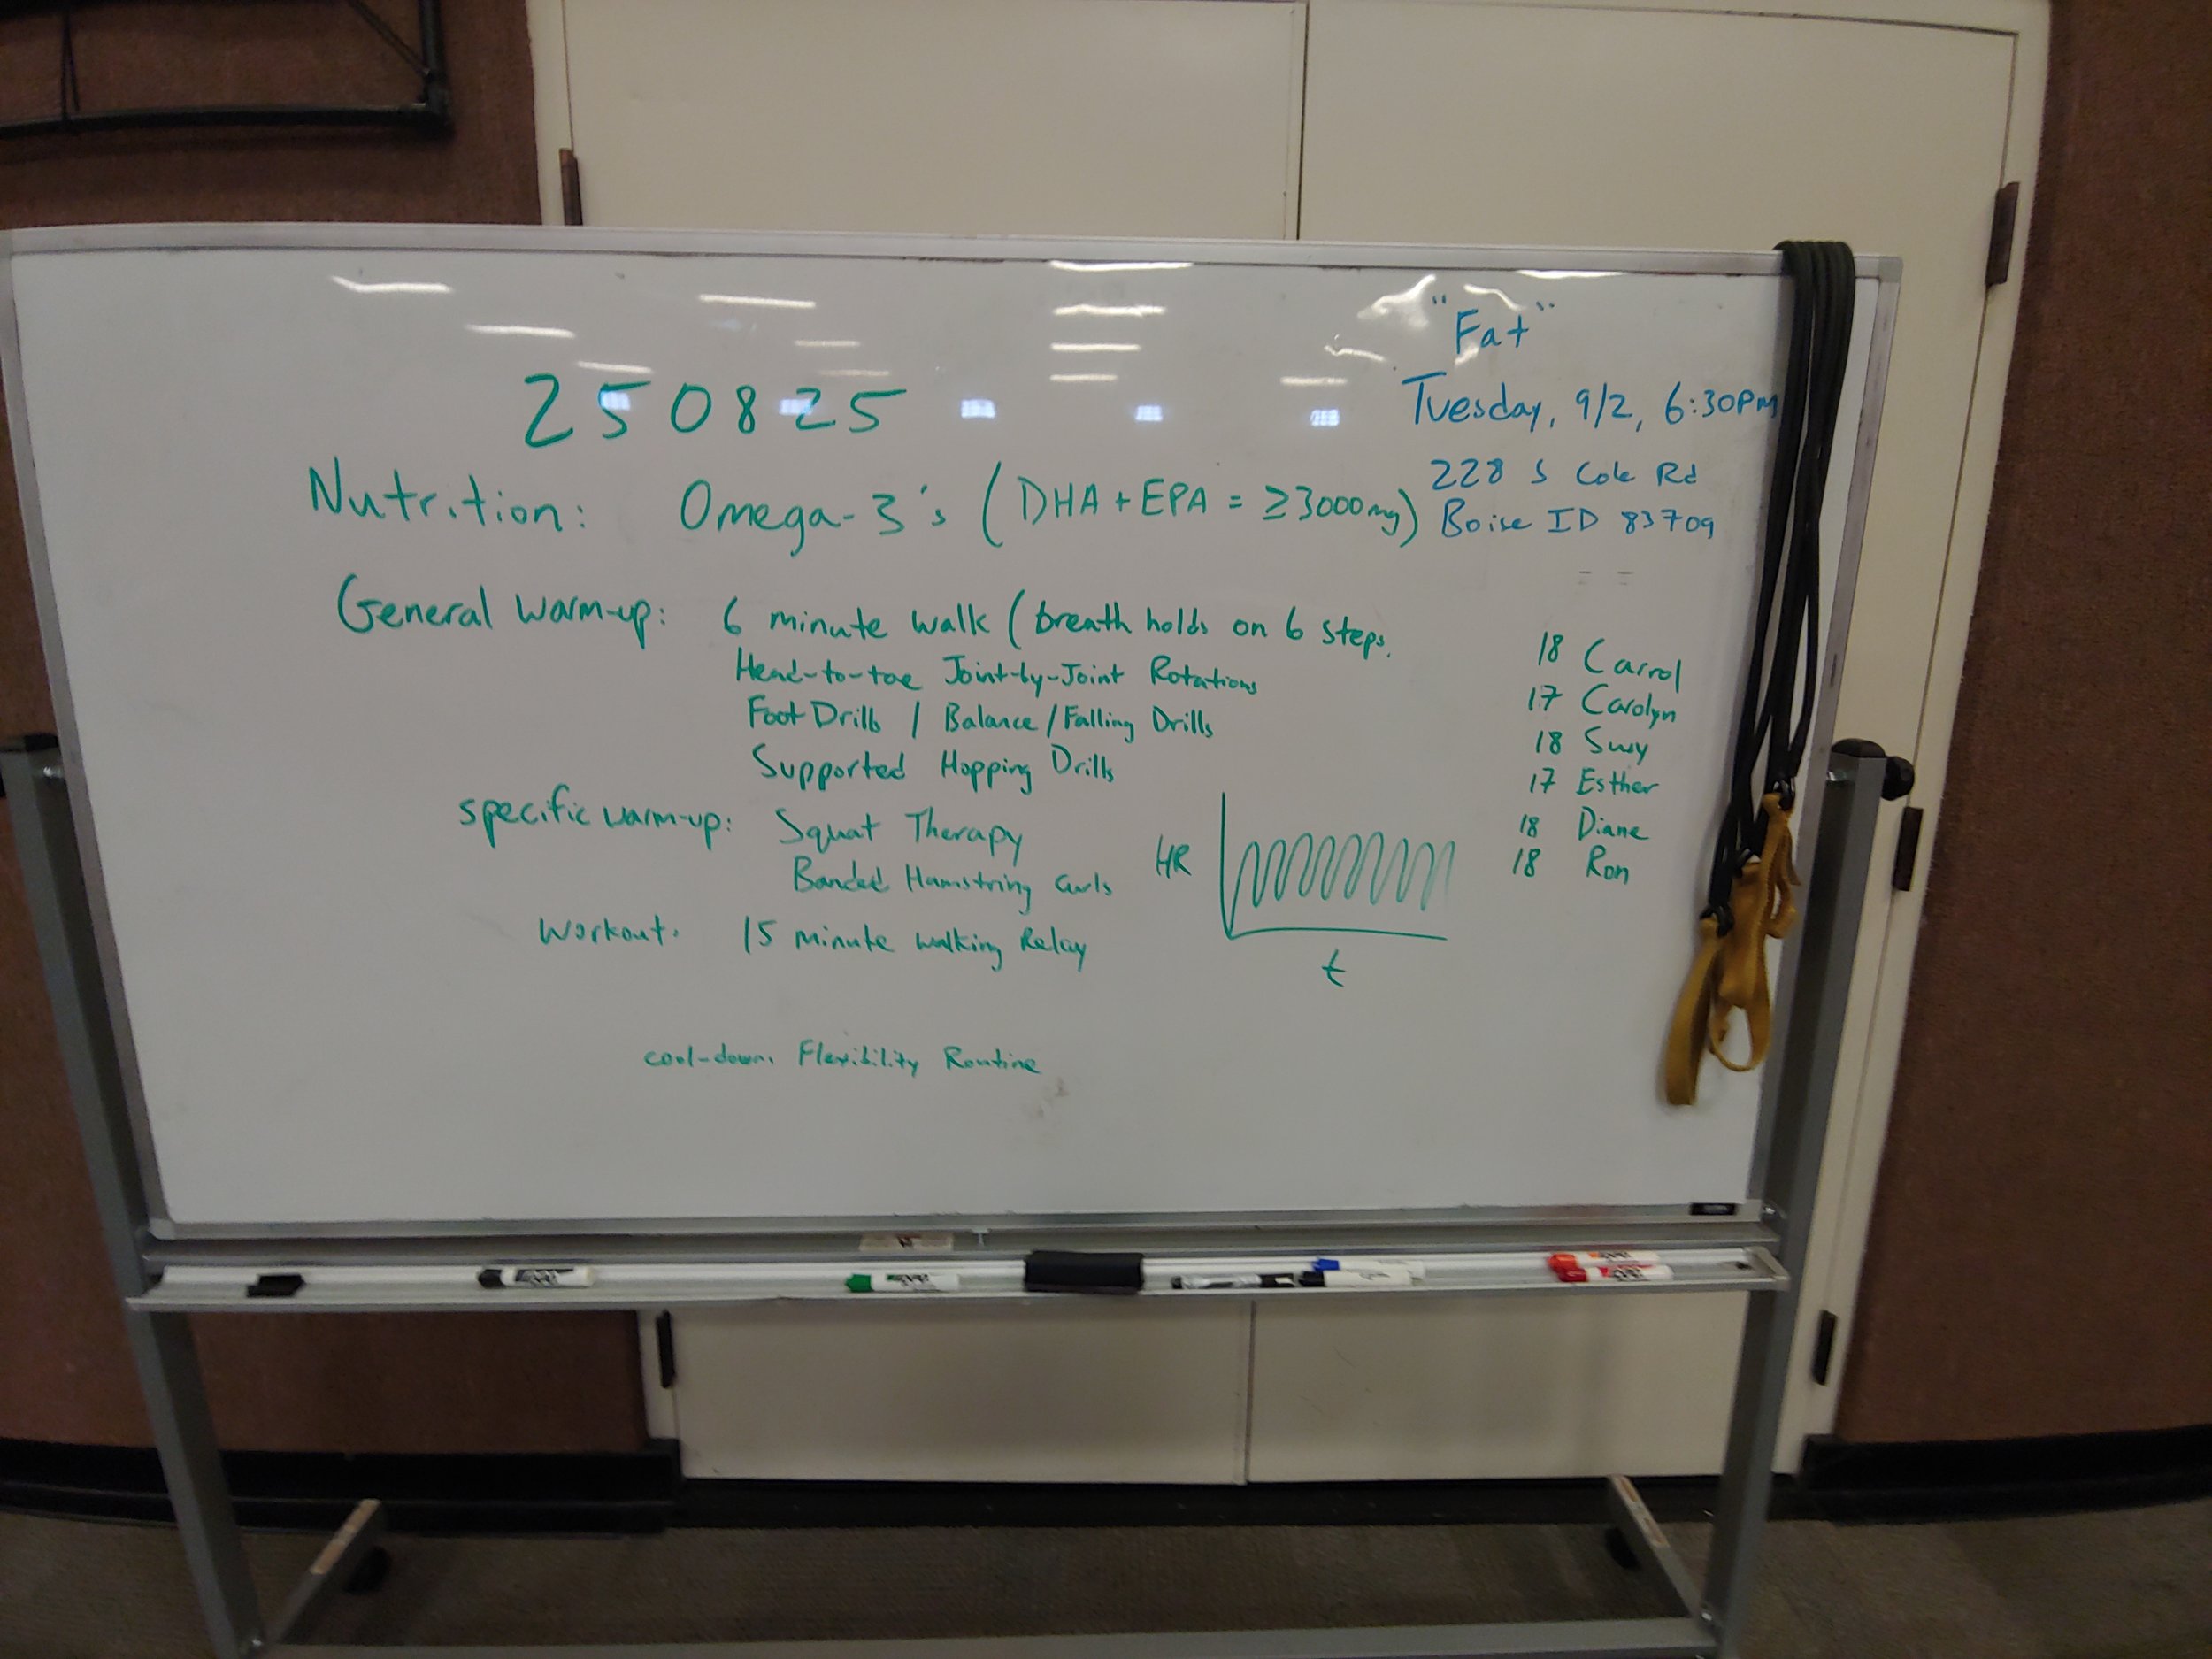 "Fat"
Tuesday, 9/2, 6:30PM
228 S Cole Rd
Boise ID 83709
250825
Nutrition: Omega-3's (DHA + EPA = ≥3000mg)
General warm-up: 6 minute walk (breath holds on 6 steps.
Head-to-toe Joint-by-Joint Rotations
Foot Drills / Balance/Falling Drills
Supported Hopping Drills
specific warm-up: Squat Therapy
Banded Hamstring Curls
Workout: 15 minute walking Relay
HR
t
cool-down. Flexibility Routine
18 Carrol
17 Carolyn
18 Susy
17 Esther
18 Diane
18 Ron